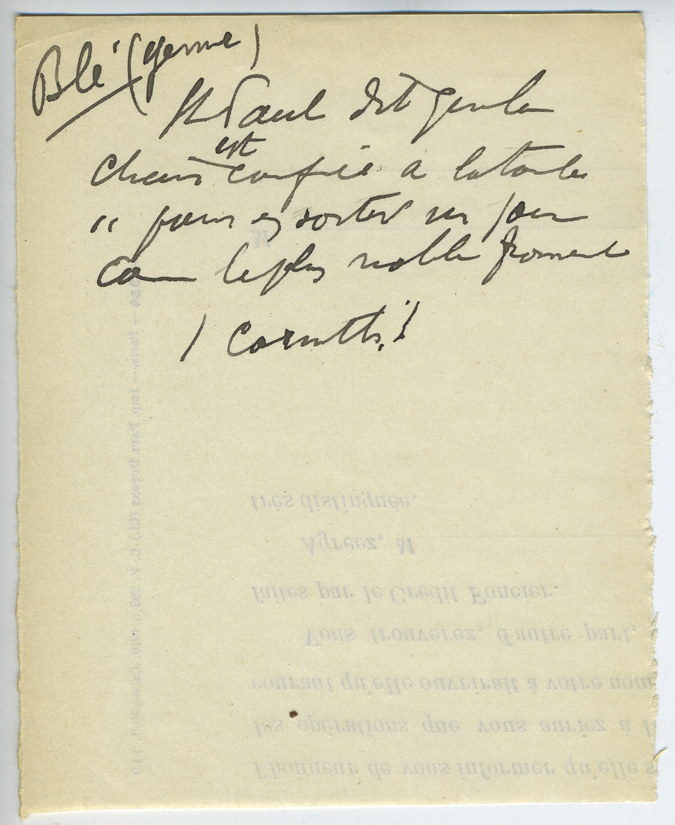 Blé (germe)
St Paul dit que la
chair est confiée à la terre
" pour en sortir un jour
com le plus noble froment
1 Corinth.
très distinguée.
Agréez, M
faites par le Crédit Foncier.
Vous trouverez, d'autre part,
courant qu'elle ouvrirait à votre nom
les opérations que vous auriez à
l'honneur de vous informer qu'elle s